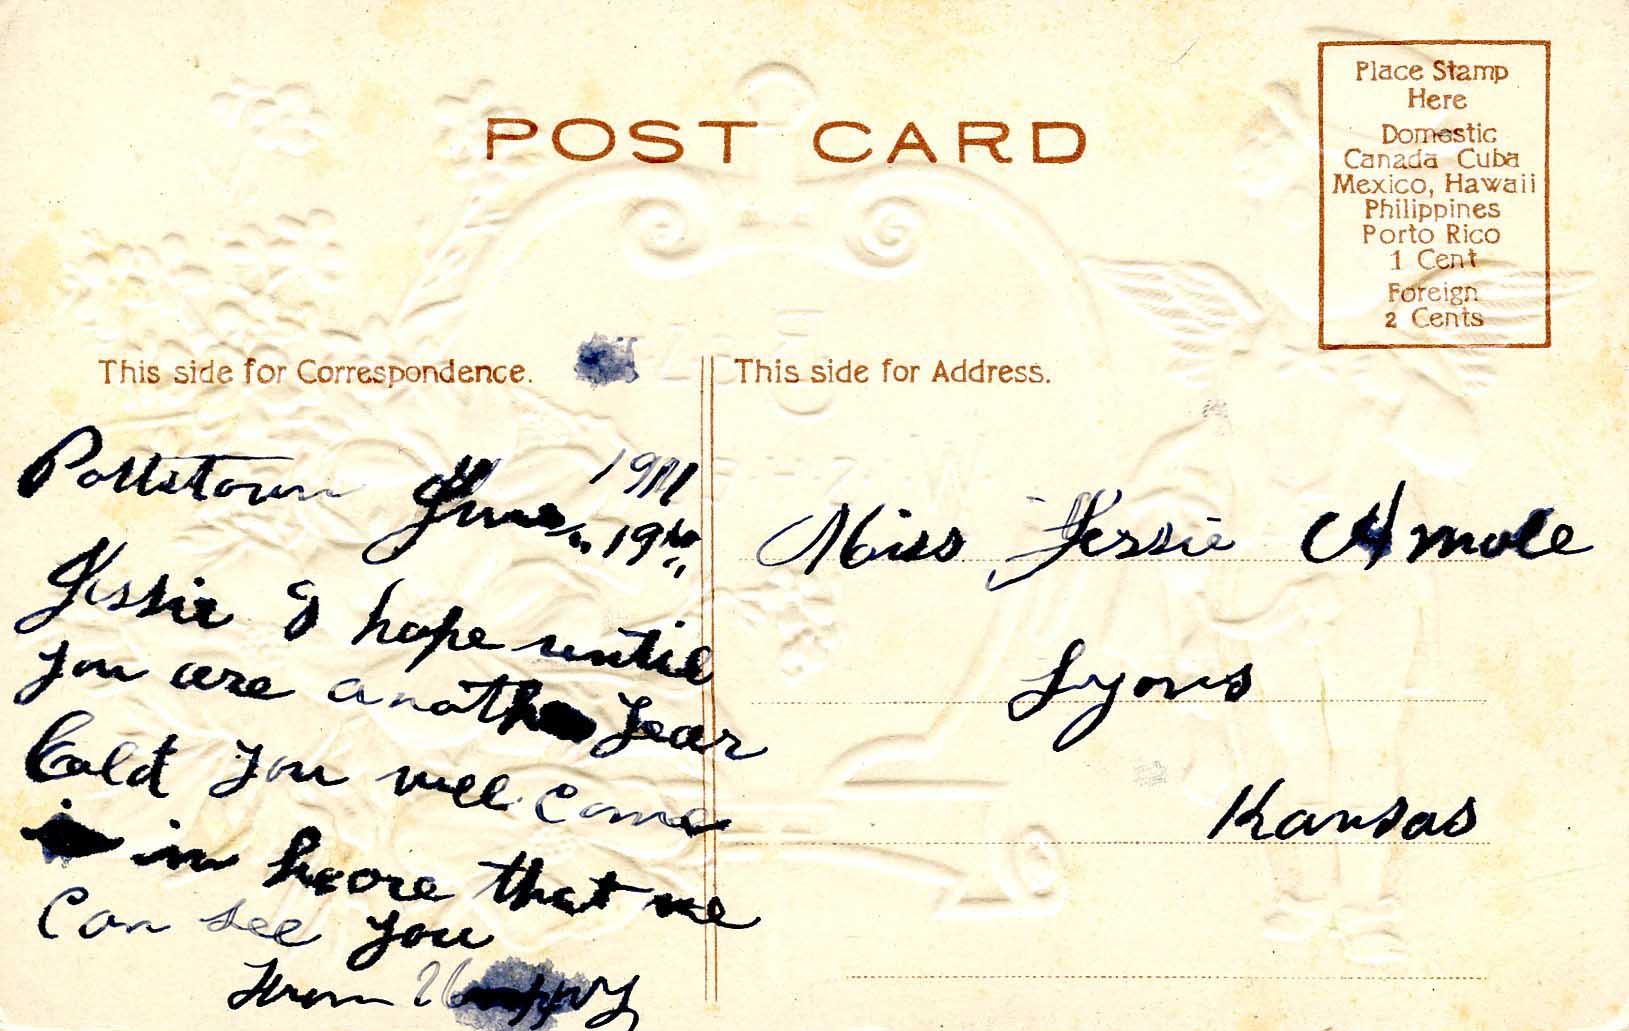 POST CARD
Place Stamp
Here
Domestic
Canada Cuba
Mexico, Hawaii
Philippines
Porto Rico
1 Cent
Foreign
2 Cents
This side for Correspondence.
Pottstown June 19 1911
Jessie I hope until
you are anoth year
hold you will come
in heare that we
can see you
From
This side for Address.
Miss Jessie Amole
Lyons
Kansas